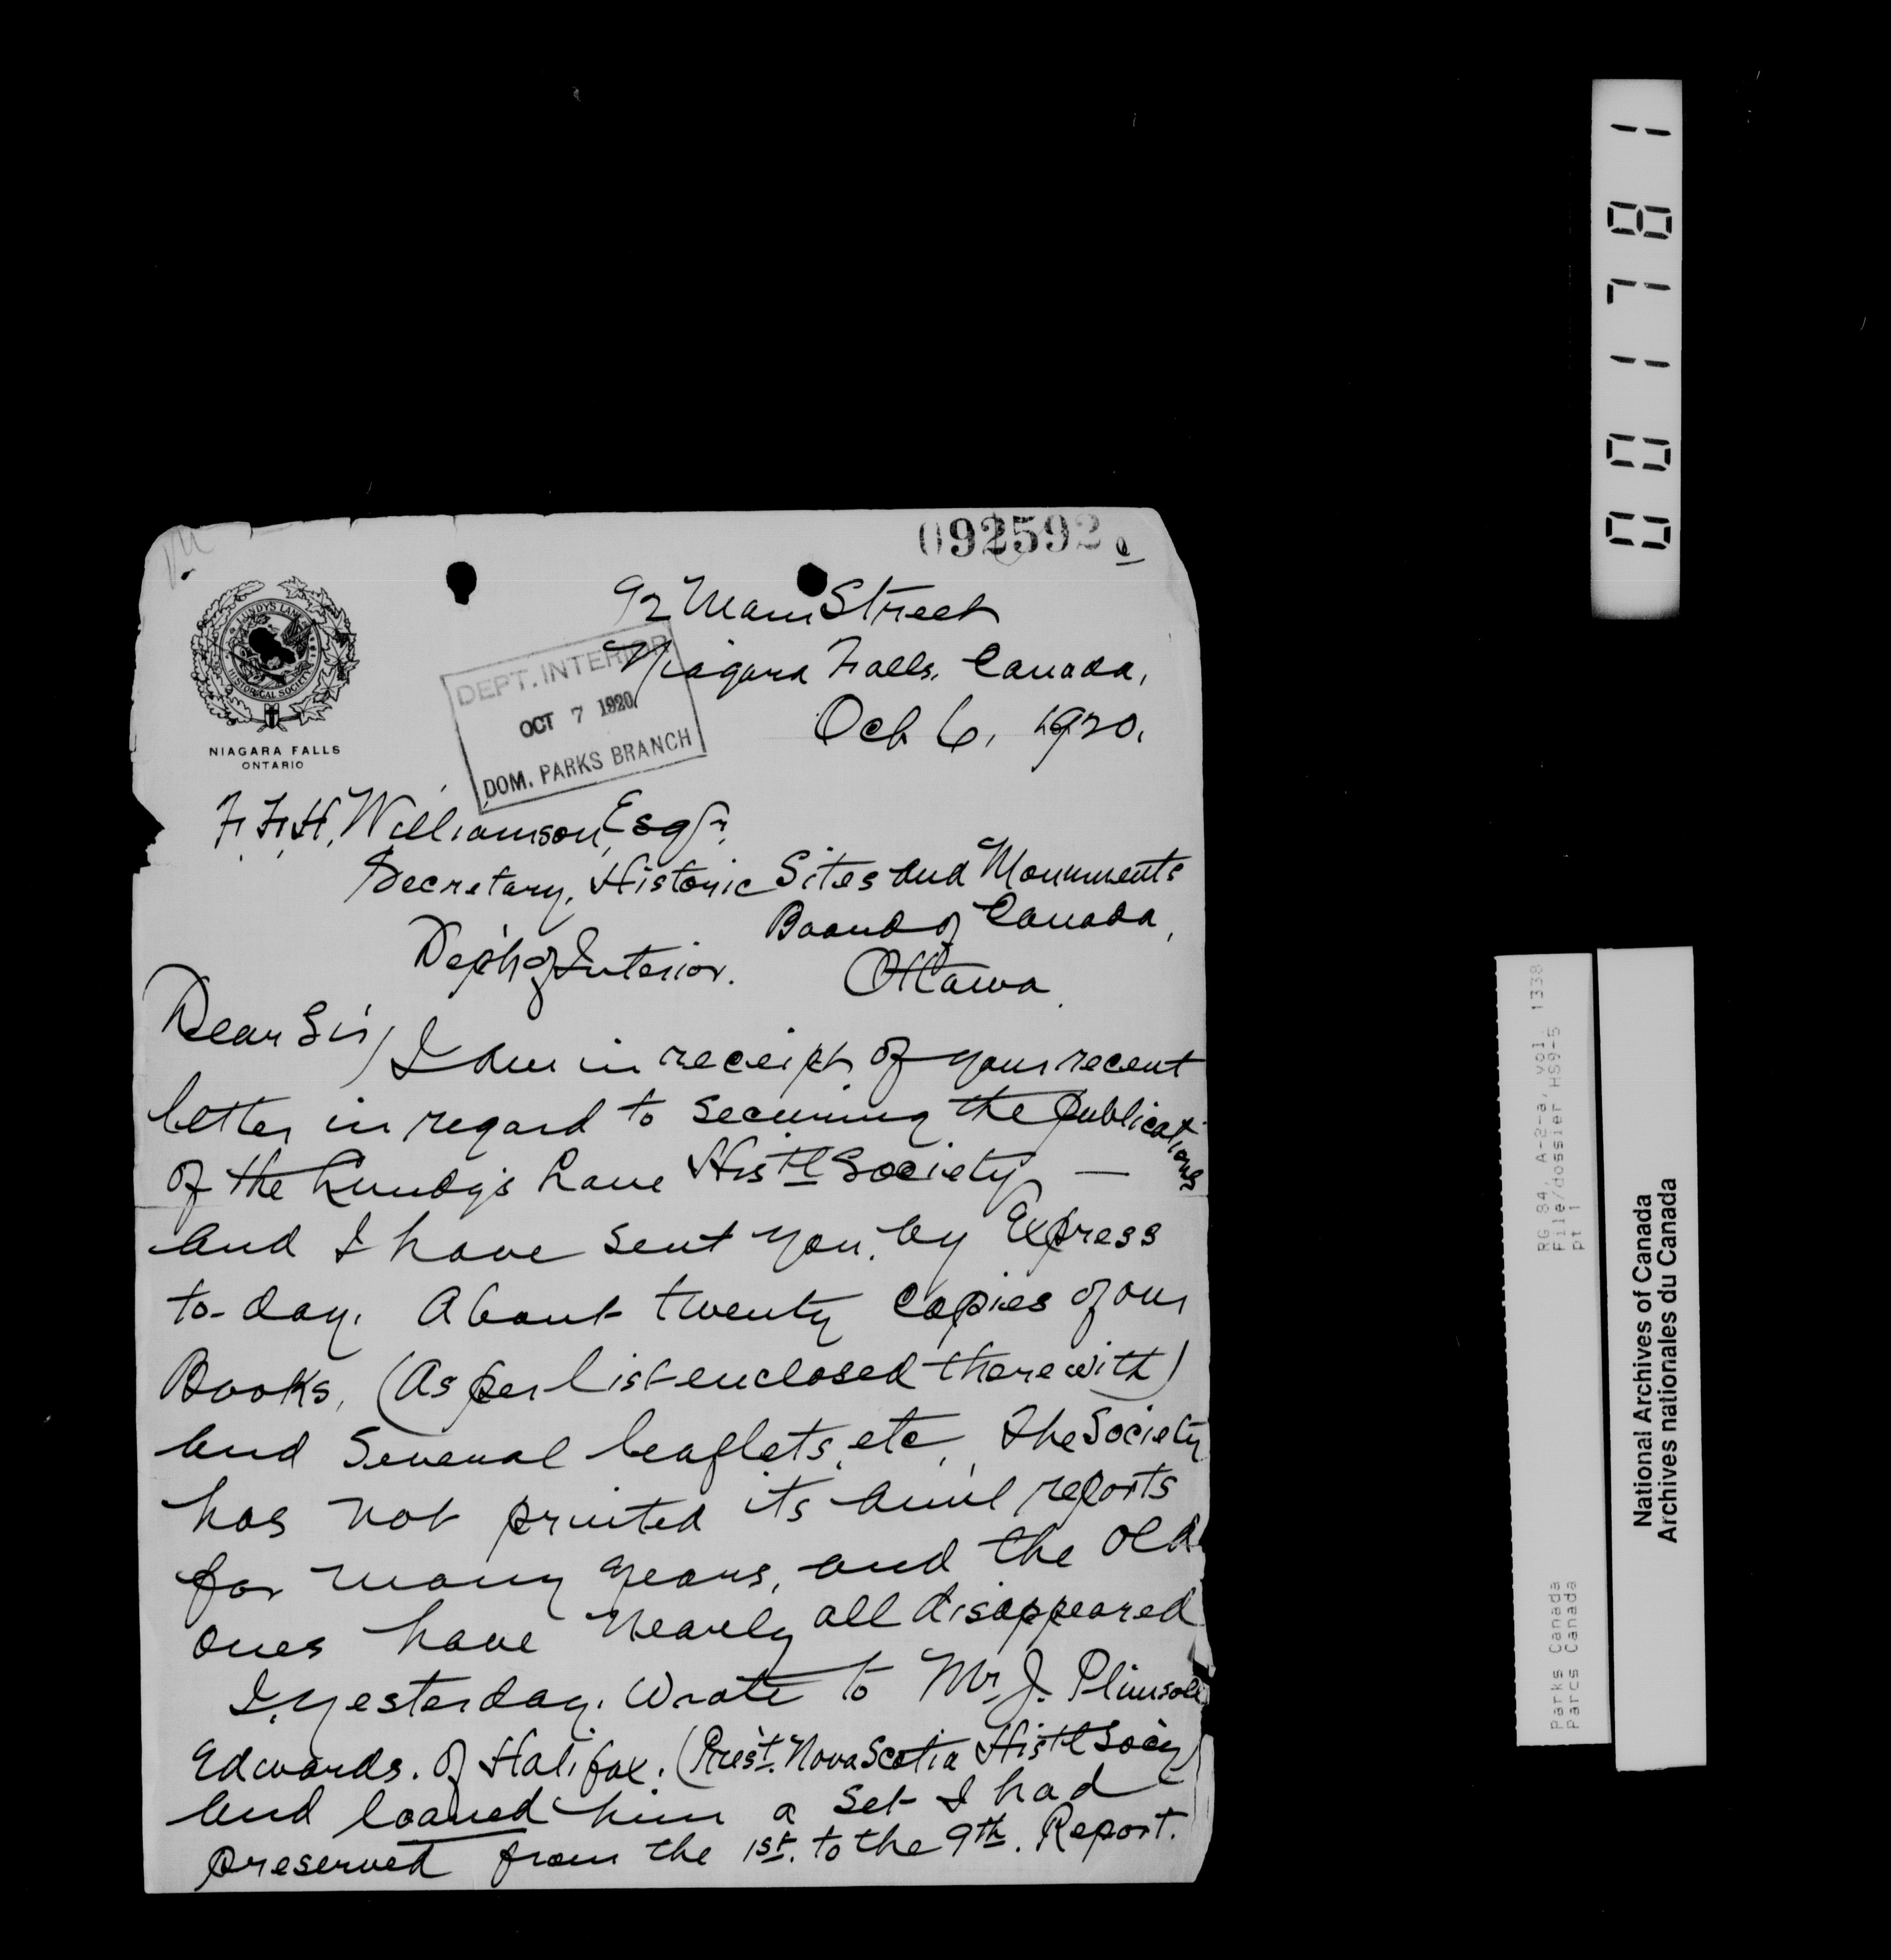 092592
92 Main Street
Niagara Falls, Canada,
Oct 6, 1920.
LUNDYS LANE
HISTORICAL SOCIETY
NIAGARA FALLS
ONTARIO
DEPT. INTERIOR
OCT 7 1920
DOM. PARKS BRANCH
F.F.H. Williamson, Esqr.
Secretary, Historic Sites and Monuments
Board of Canada,
Dep't of Interior.
Ottawa
Dear Sir/ I am in receipt of your recent
letter in regard to securing the publications
of the Lundy's Lane Histl Society —
and I have sent you, by Express
to-day. About twenty copies of our
Books, (As per list enclosed therewith)
and Several leaflets, etc, The Society
has not printed its annl reports
for many years, and the old
ones have nearly all disappeared
I, yesterday, Wrote to Mr J. Plimsoll
Edwards. of Halifax. (Pres't. Nova Scotia Histl Soc'y)
and loaned him a set I had
preserved from the 1st. to the 9th. Report.
001781
RG 84, A-2-a, vol. 1338
File/dossier HS9-5
pt 1
Parks Canada
Parcs Canada
National Archives of Canada
Archives nationales du Canada